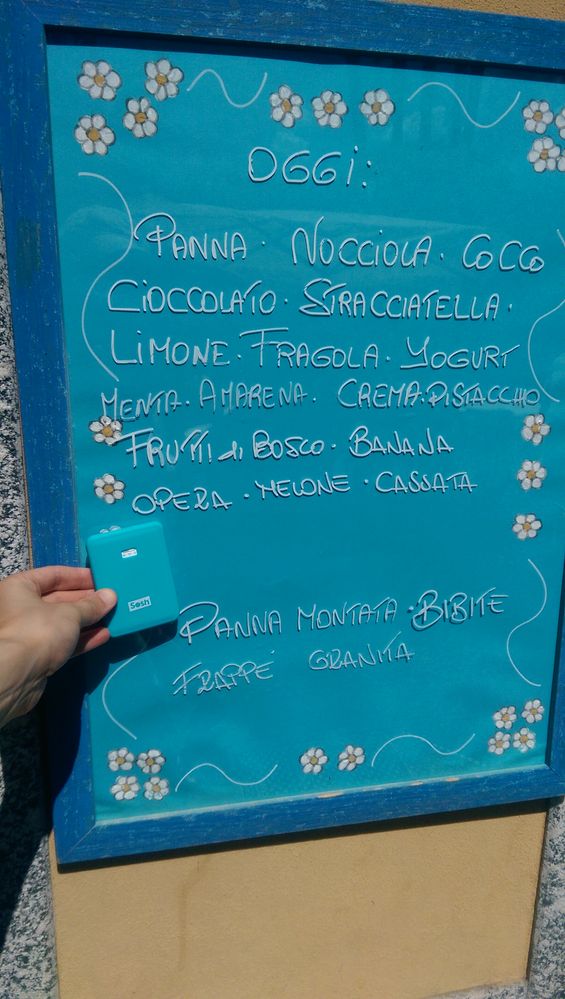 OGGi:
PANNA · NOCCIOLA · COCCO
CIOCCOLATO · STRACCIATELLA ·
LIMONE · FRAGOLA · YOGURT
MENTA · AMARENA · CREMA · PISTACCHIO
FRUTTI di BOSCO · BANANA
OPERA · MELONE · CASSATA
Sosh
PANNA MONTATA · BIBITE
FRAPPÉ GRANITA